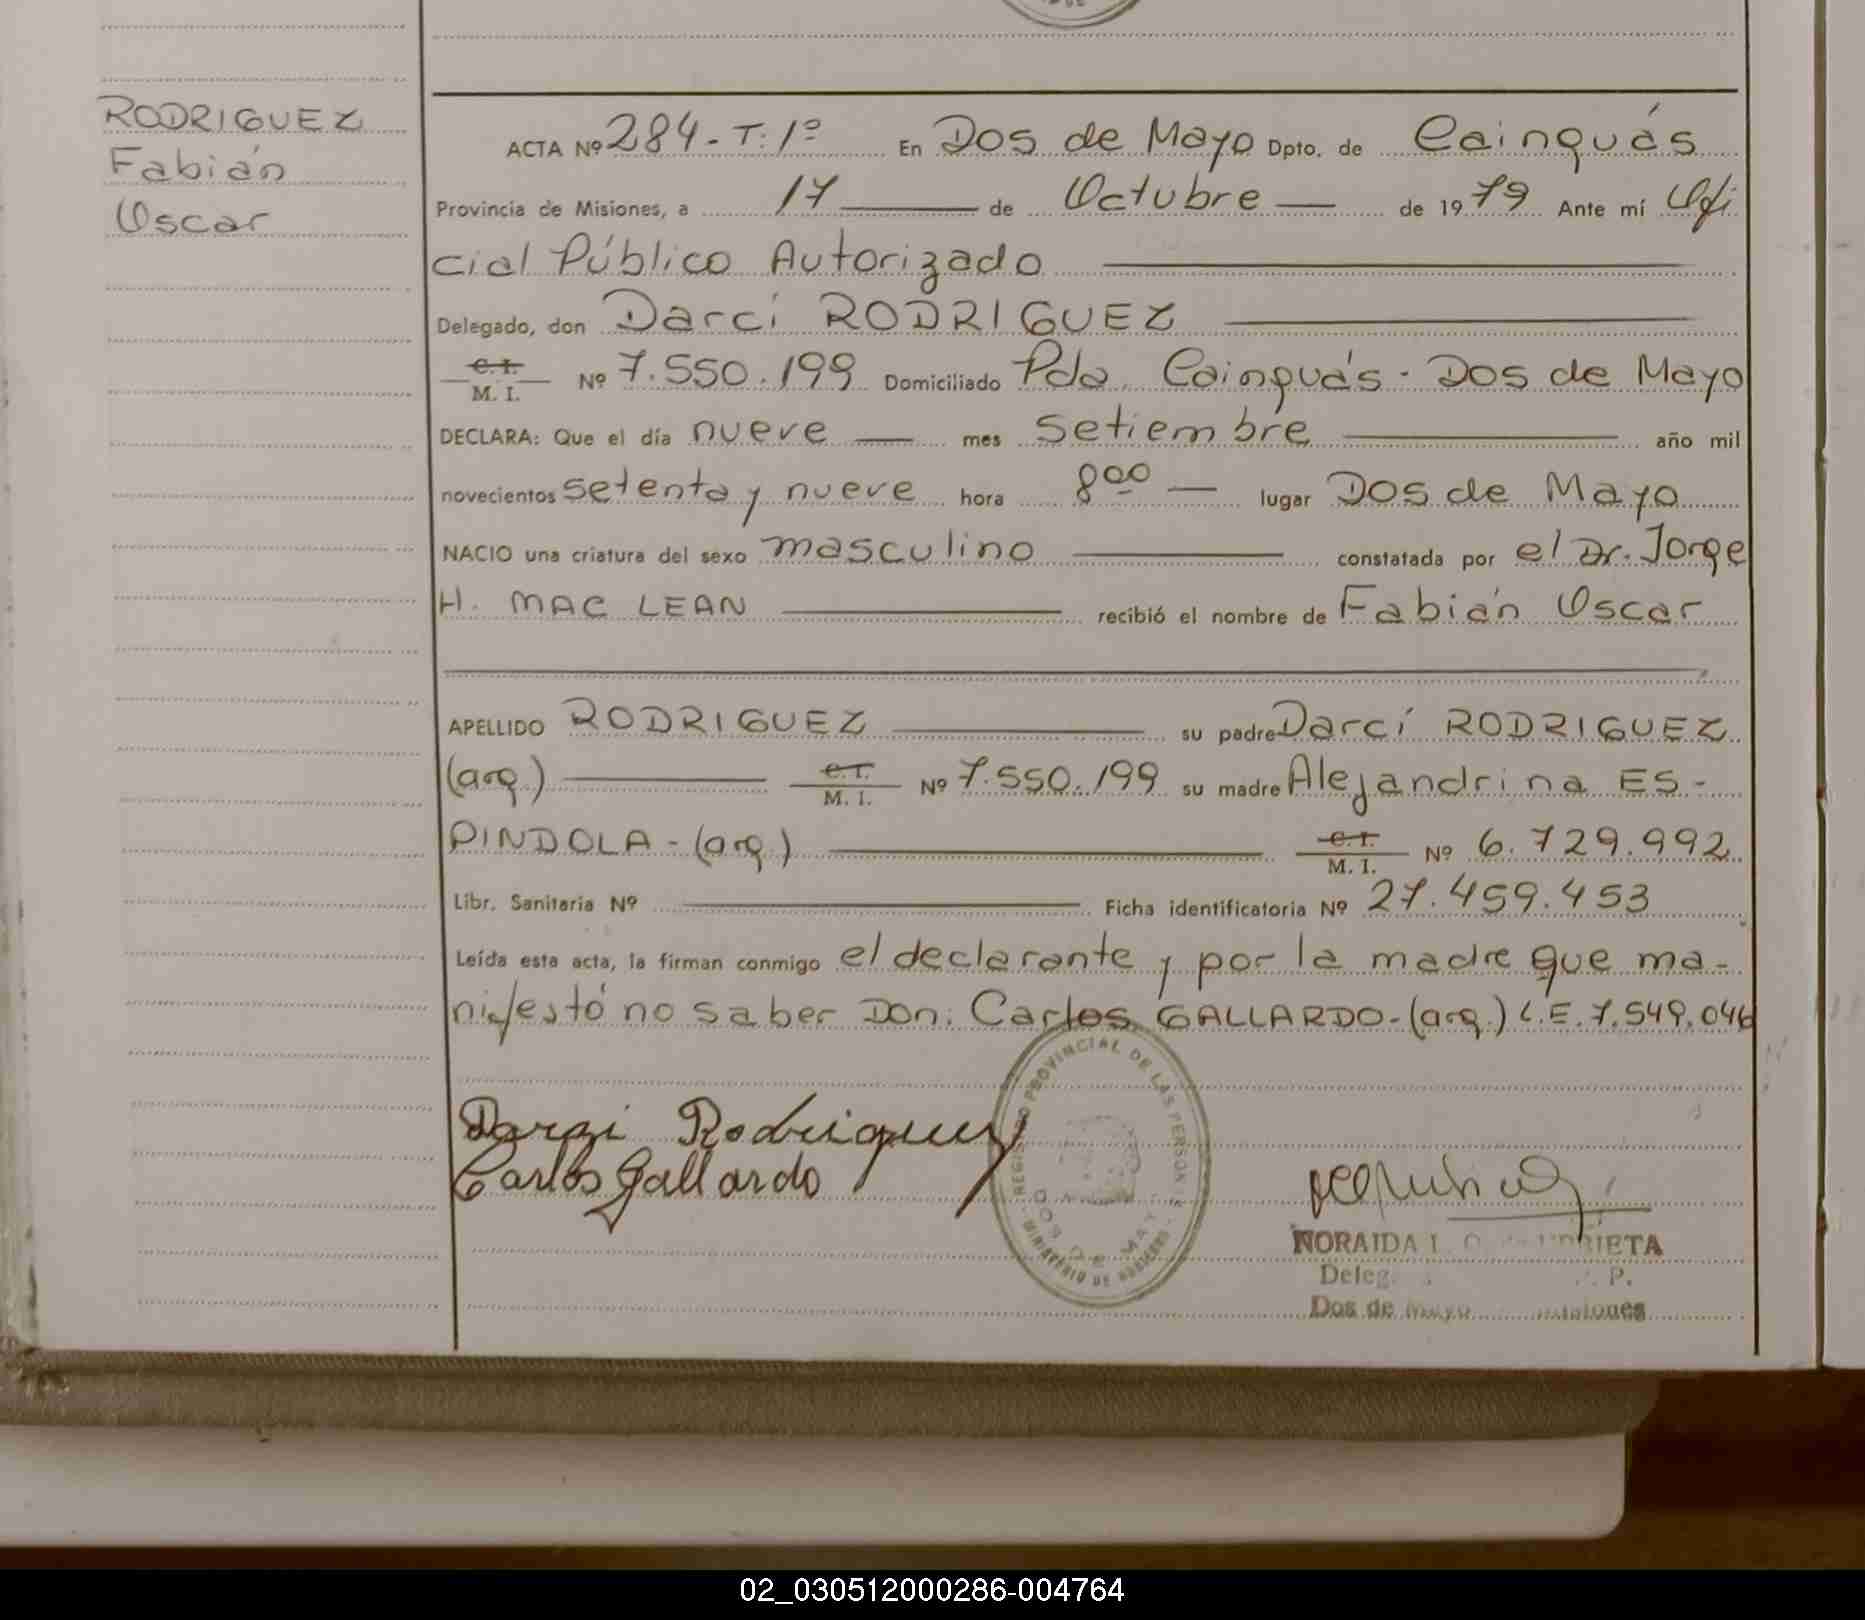 RODRIGUEZ
Fabián
Oscar
ACTA Nº 284 - T: 1º En Dos de Mayo Dpto. de Cainguás
Provincia de Misiones, a 17 de Octubre de 1979 Ante mí Ofi
cial Público Autorizado
Delegado, don Darci RODRIGUEZ
C. I.
M. I. Nº 7.550.199 Domiciliado Pdo. Cainguás - Dos de Mayo
DECLARA: Que el día nueve mes setiembre año mil
novecientos setenta y nueve hora 8 00 lugar Dos de Mayo
NACIO una criatura del sexo masculino constatada por el Dr. Jorge
H. MAC LEAN recibió el nombre de Fabián Oscar
APELLIDO RODRIGUEZ su padre Darcí RODRIGUEZ
(arg.) C. I. M. I. Nº 7.550.199 su madre Alejandrina ES-
PINDOLA - (arg.) C. I. M. I. Nº 6.729.992
Libr. Sanitaria Nº Ficha identificatoria Nº 27.459.453
Leída esta acta, la firman conmigo el declarante y por la madre que ma-
nifestó no saber Don: Carlos GALLARDO - (arg.) L.E. 7.549.046
Darci Rodriguez
Carlos Gallardo
REGISTRO PROVINCIAL DE LAS PERSONAS
MINISTERIO DE GOBIERNO
DOS DE MAYO
NORAIDA
Deleg. P.
Dos de Mayo Misiones
02_030512000286-004764